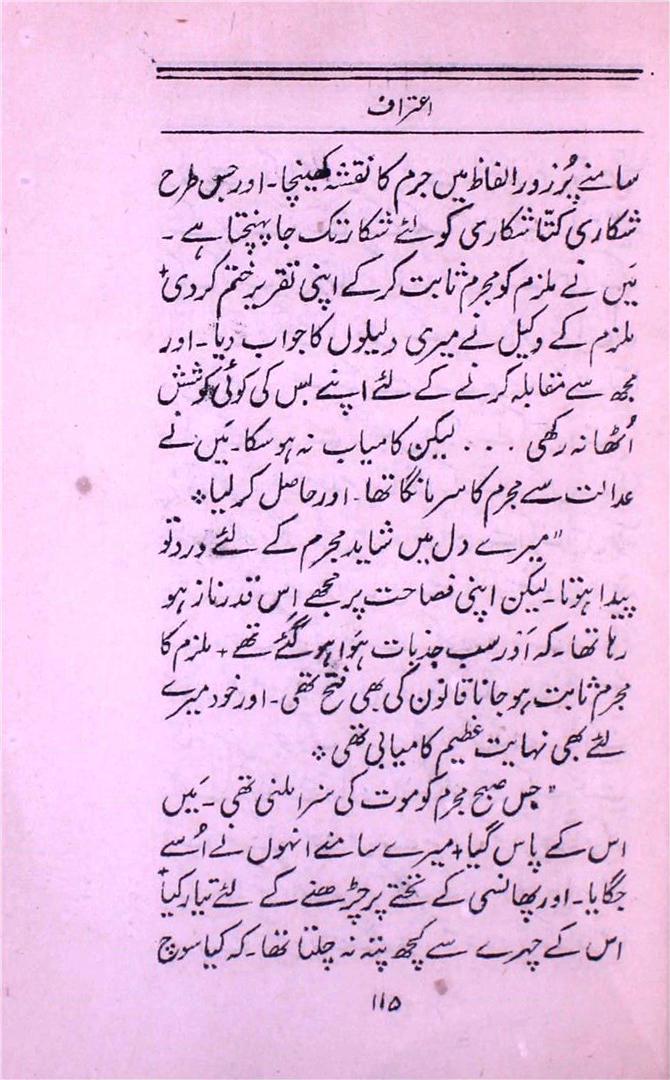 اعتراف
سامنے پُرزور الفاظ میں جرم کا نقشہ کھینچا۔ اور جس طرح
شکاری کتّا شکاری کو لئے شکار تک جا پہنچتا ہے ۔
مَیں نے ملزم کو مجرم ثابت کرکے اپنی تقریر ختم کر دی+
ملزم کے وکیل نے میری دلیلوں کا جواب دیا۔ اور
مجھ سے مقابلہ کرنے کے لئے اپنے بس کی کوئی کوشش
اُٹھا نہ رکھی ۰۰۰ لیکن کامیاب نہ ہوسکا۔ مَیں نے
عدالت سے مجرم کا سر مانگا تھا۔ اور حاصل کر لیا ؞
"میرے دل میں شاید مجرم کے لئے درد تو
پیدا ہوتا۔ لیکن اپنی فصاحت پر مجھے اس قدر ناز ہو
رہا تھا۔ کہ اَور سب جذبات ہَوا ہو گئے تھے + ملزم کا
مجرم ثابت ہو جانا قانون کی بھی فتح تھی۔ اور خود میرے
لئے بھی نہایت عظیم کامیابی تھی ؞
"جس صبح مجرم کو موت کی سزا ملنی تھی ۔ مَیں
اس کے پاس گیا + میرے سامنے انہوں نے اُسے
جگایا۔ اور پھانسی کے تختے پر چڑھنے کے لئے تیار کیا+
اس کے چہرے سے کچھ پتہ نہ چلتا تھا۔ کہ کیا سوچ
۱۱۵